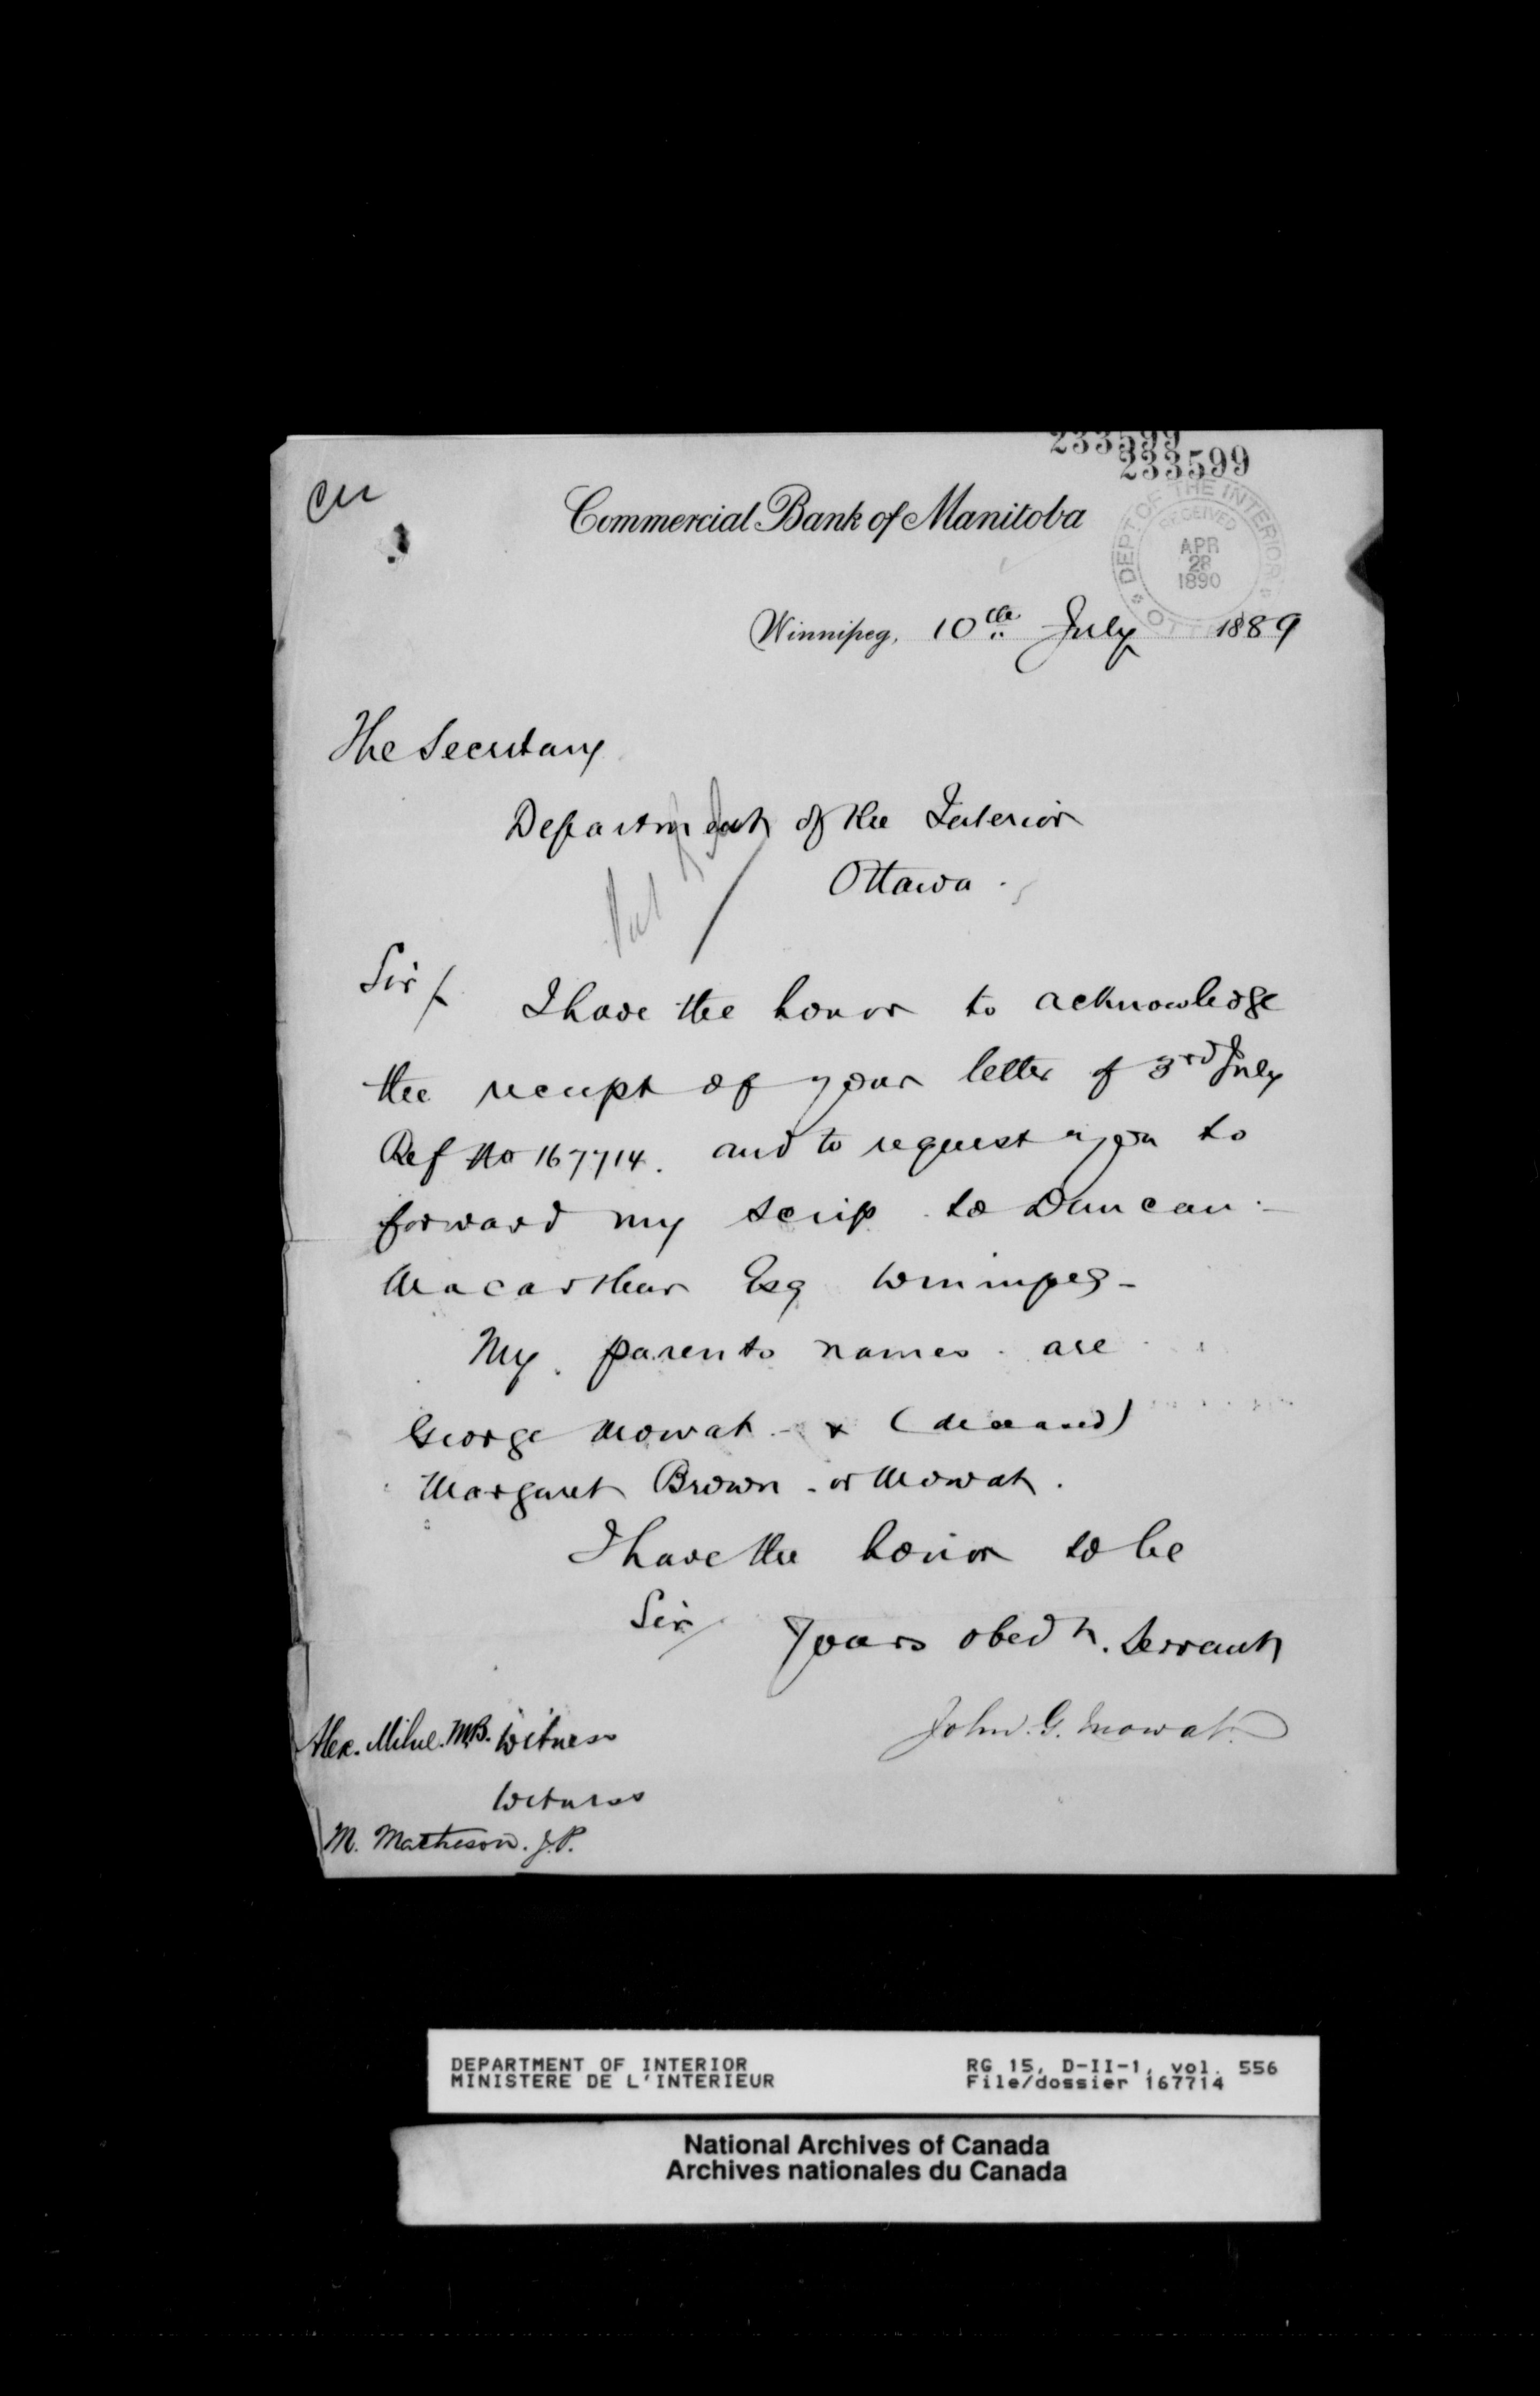 233599
233599
Commercial Bank of Manitoba
DEPT OF THE INTERIOR
RECEIVED
APR
28
1890
OTTAWA
Winnipeg, 10th July 1889
The Secretary
Department of the Interior
Ottawa.
Sir/. I have the honor to acknowledge
the receipt of your letter of 3rd July
Ref No 167714. and to request you to
forward my scrip to Duncan
Macarthur Esq Winnipeg-
My parents names are
George Mowat - & (deceased)
Margaret Brown - or Mowat.
I have the honor to be
Sir/ Yours obedt. Servant
John. G. Mowat.
Alex. Milne. M.B. Witness
Witness
M. Matheson. J.P.
DEPARTMENT OF INTERIOR RG 15, D-II-1, vol. 556
MINISTERE DE L'INTERIEUR File/dossier 167714
National Archives of Canada
Archives nationales du Canada